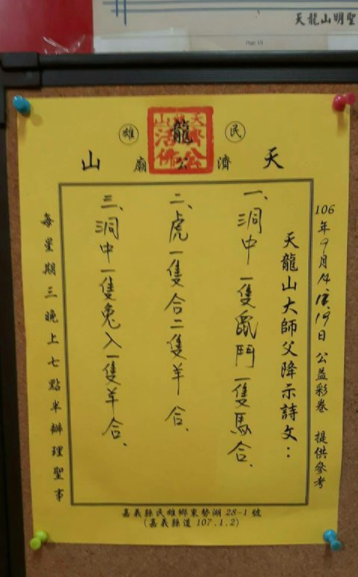 天龍山明聖
民雄
天龍山
濟公廟
106年9月 19日 公益彩券 提供參考
天龍山大師父降示詩文：
一、洞中一隻鼠鬥一隻馬合、
二、虎一隻合二隻羊合、
三、洞中一隻兔入一隻羊合、
每星期三晚上七點半辦理聖事
嘉義縣民雄鄉東勢湖28-1號
(嘉義縣道107.1.2)